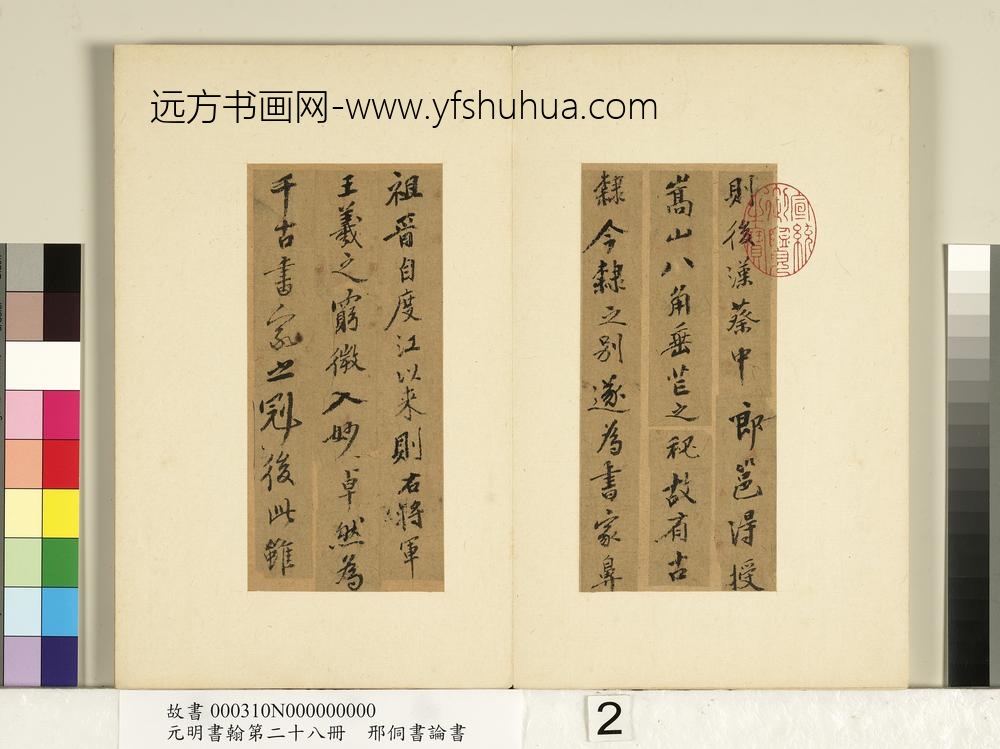 远方书画网-www.yfshuhua.com
則後漢蔡中郎邕得授
嵩山八角垂芒之秘故有古
隸今隸之别遂為書家鼻
祖晉自度江以来則右將軍
王羲之窮微入妙卓然為
千古書家之冠後此雖
宣統御覽之寶
故書 000310N000000000
元明書翰第二十八冊 邢侗書論書
2